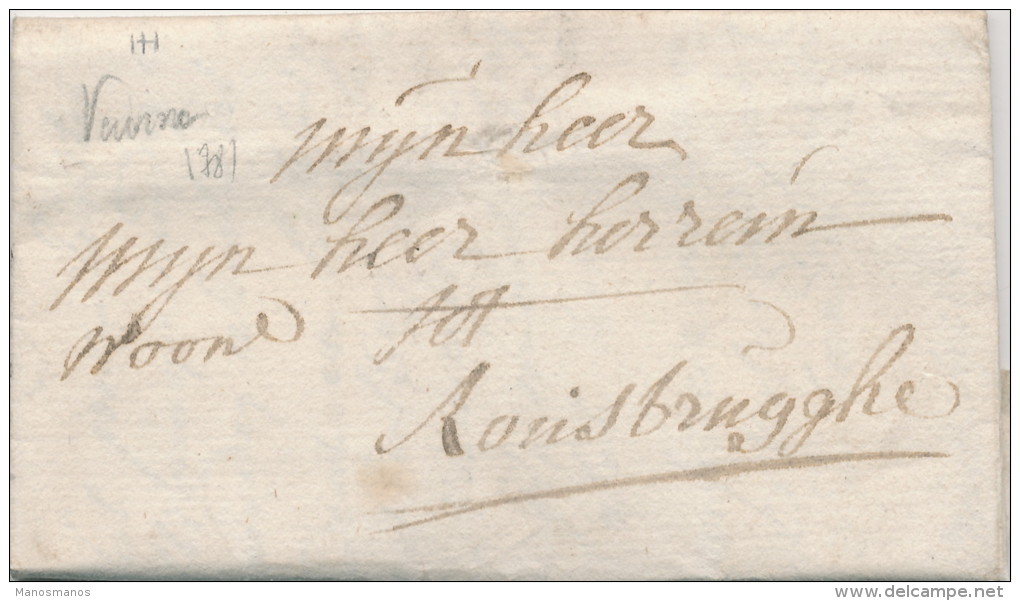 Veurne
1781
mÿn heer
mijn heer herrein
woone tot
Rousbrugghe
Manosmanos
delcampe.net